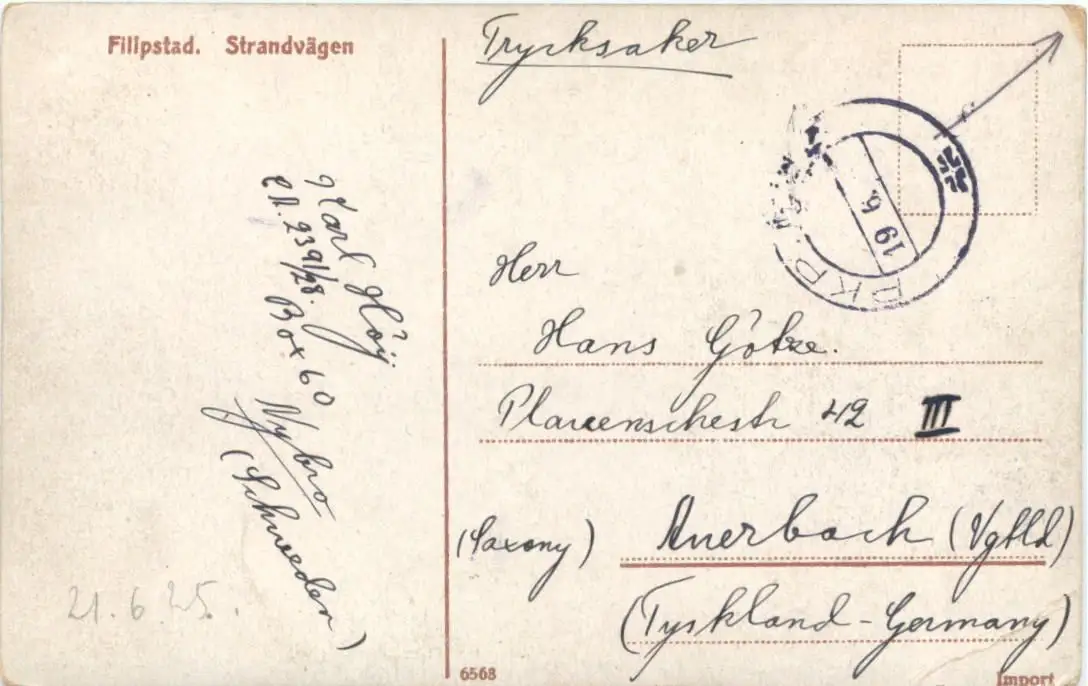 Filipstad. Strandvägen
Trycksaker
19 6.
PKP.
Karl Höij.
239/28. Box. 60
Nybro
(Schweden)
21.6 25.
Herr
Hans Götze.
Plauenschestr 42 III
(Saxony) Auerbach (Vgtld)
(Tyskland - Germany)
6568
Import